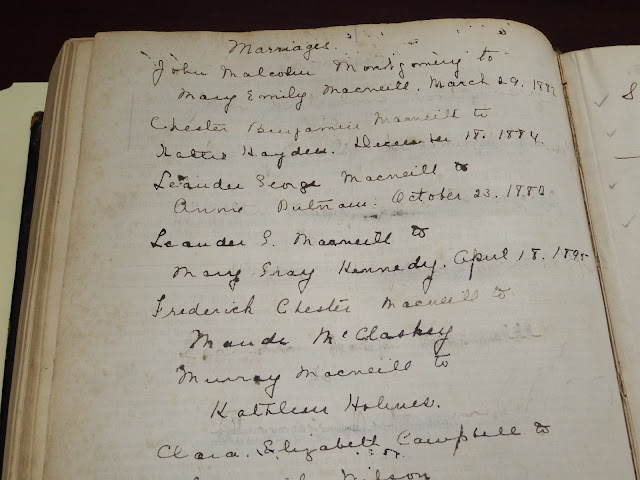 Marriages.
John Malcolm Montgomery to
Mary Emily Macneill. March 29. 1882
Chester Benjamin Macneill to
Hattie Hayden. December 18. 1884.
Leander George Macneill to
Annie Putnam. October 23. 1883
Leander G. Macneill to
Mary Gray Kennedy. April 18. 1895
Frederick Chester Macneill to
Maude McClaskey
Murray Macneill to
Kathleen Holmes.
Clara. Elizabeth Campbell to
Wilson
S